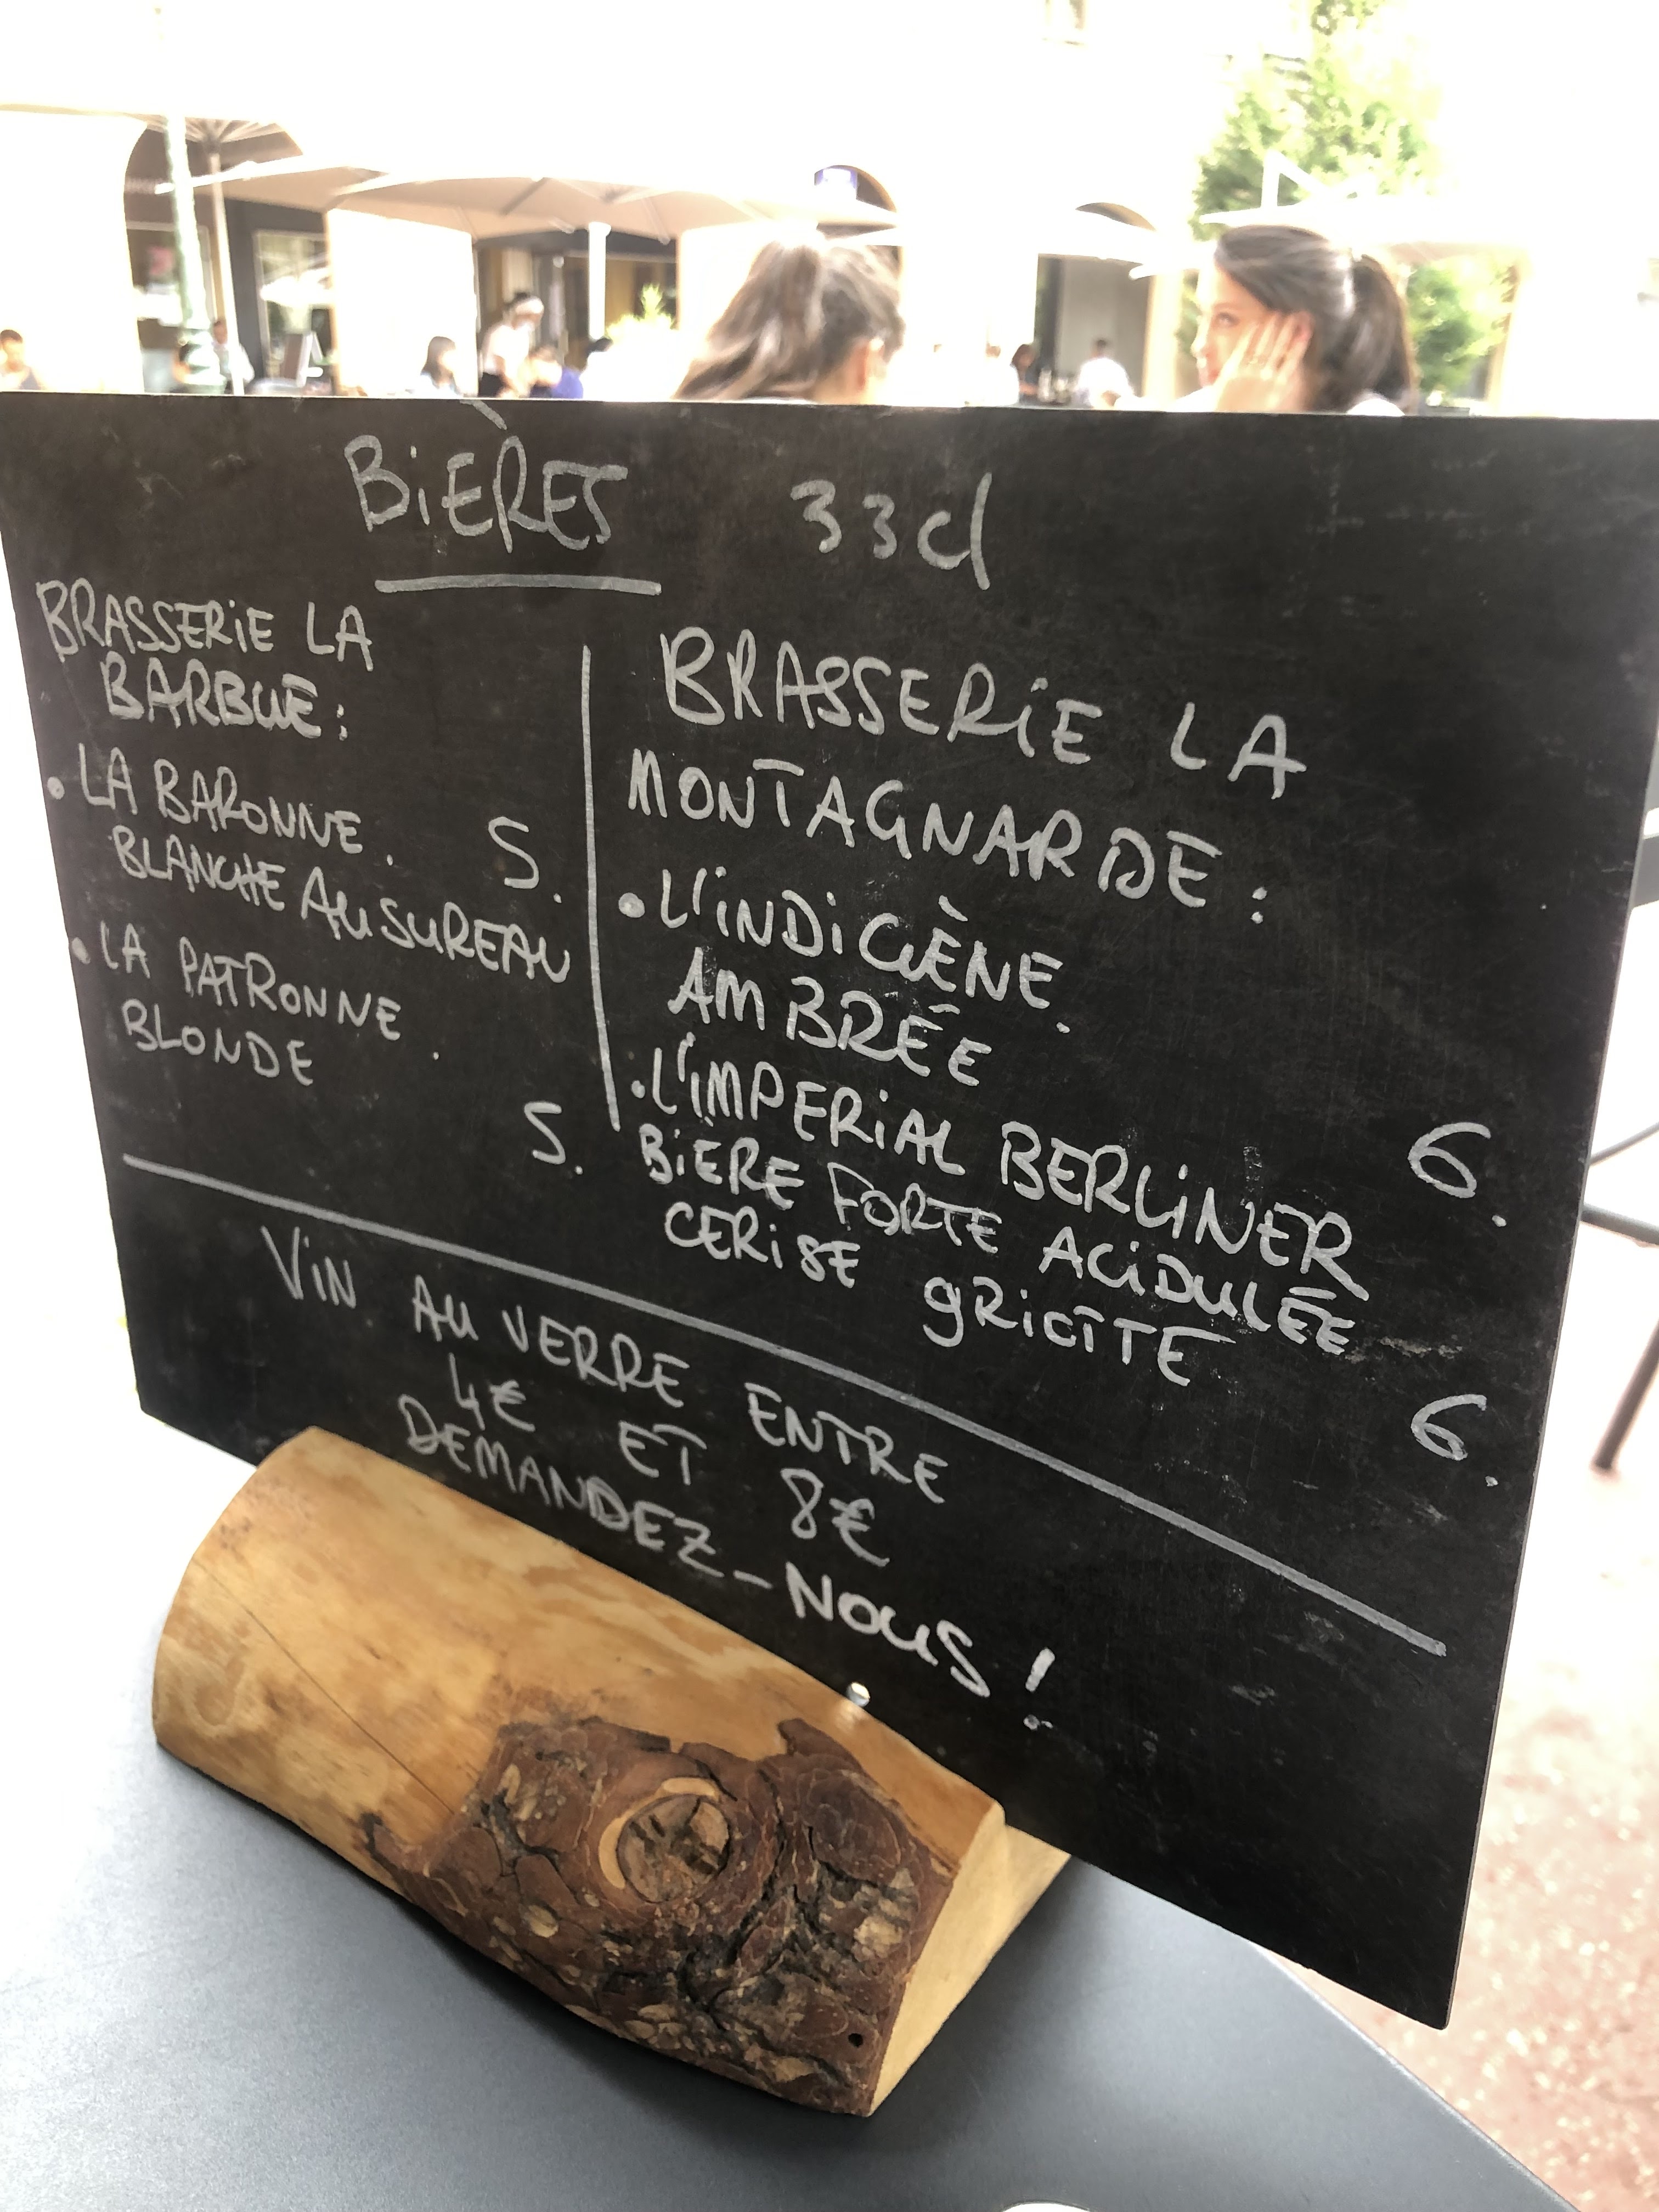 BIÈRES 33cl
BRASSERIE LA
BARBUE :
• LA BARONNE. 5.
BLANCHE AU SUREAU
• LA PATRONNE.
BLONDE
5.
BRASSERIE LA
MONTAGNARDE :
• L'INDIGÈNE.
AMBRÉE
6.
• L'IMPERIAL BERLINER
BIÈRE FORTE ACIDULÉE
CERISE GRIOTTE
6.
VIN AU VERRE ENTRE
4€ ET 8€
DEMANDEZ-NOUS !